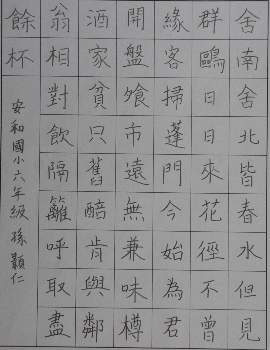 舍南舍北皆春水但見
群鷗日日來花徑不曾
緣客掃蓬門今始為君
開盤飧市遠無兼味樽
酒家貧只舊醅肯與鄰
翁相對飲隔籬呼取盡
餘杯
安和國小六年級 孫顥仁